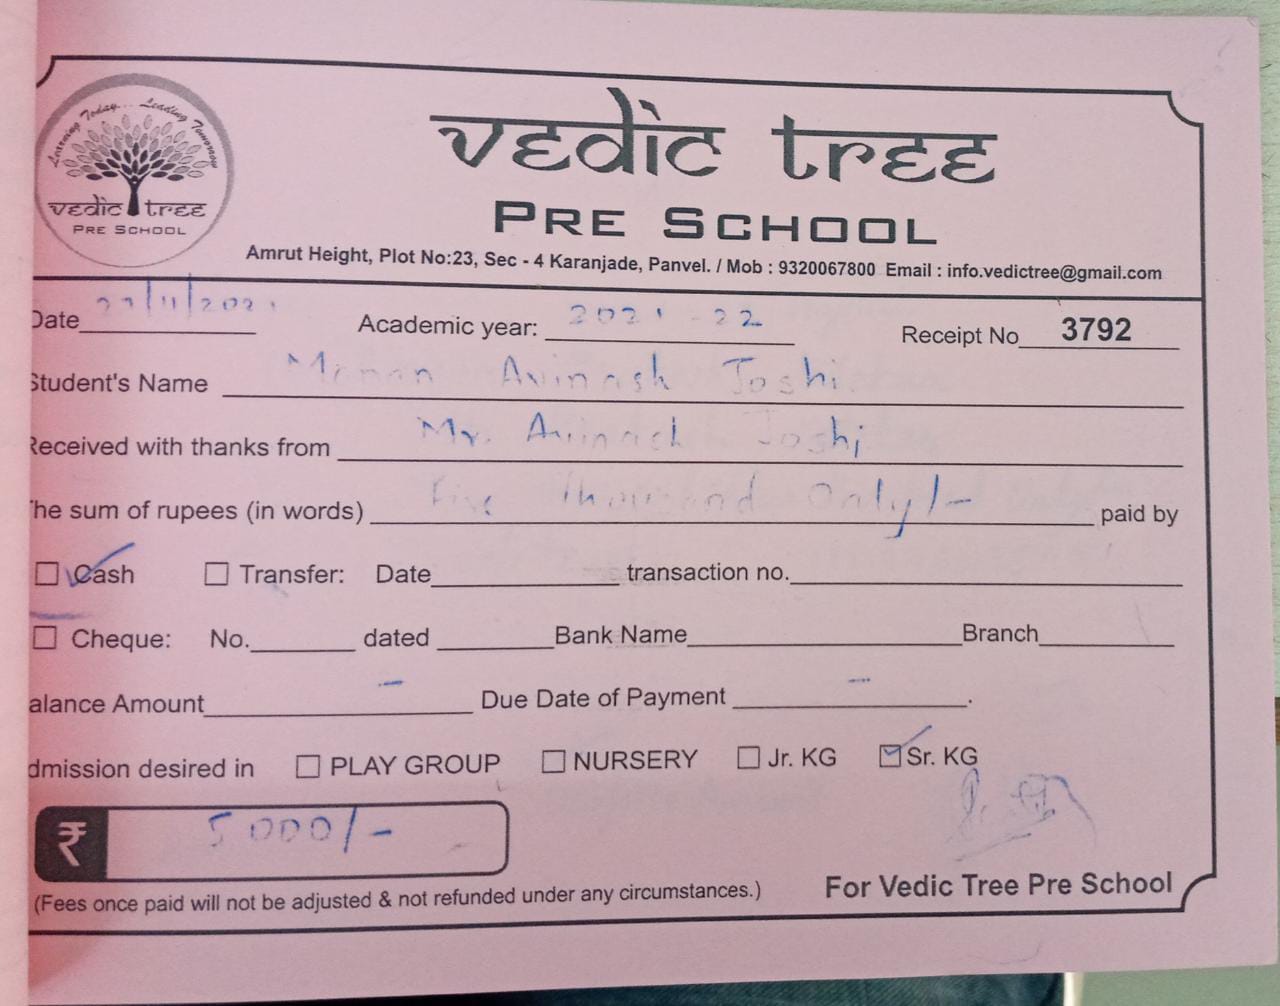 Learning Today... Leading Tomorrow
vedic tree
PRE SCHOOL
vedic tree
PRE SCHOOL
Amrut Height, Plot No:23, Sec - 4 Karanjade, Panvel. / Mob : 9320067800 Email : info.vedictree@gmail.com
Date /11/2021 Academic year: 2021-22 Receipt No 3792
Student's Name Avinash Joshi
Received with thanks from Mr. Avinash Joshi
The sum of rupees (in words) Five Thousand Only/- paid by
Cash Transfer: Date transaction no.
Cheque: No. dated Bank Name Branch
alance Amount - Due Date of Payment - .
dmission desired in PLAY GROUP NURSERY Jr. KG Sr. KG
₹ 5000/-
(Fees once paid will not be adjusted & not refunded under any circumstances.) For Vedic Tree Pre School